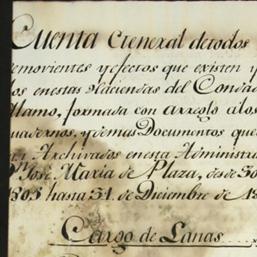 Cuenta General de todos
semovientes y efectos que existen y
os en estas Haciendas del Condad
Alamo, formada con arreglo a los
uadernos, y demas Documentos que
Archivados en esta Administra
Dn. José Maria de Plaza, desde 30
1805 hasta 31 de Diciembre de 18
Cargo de Lanas